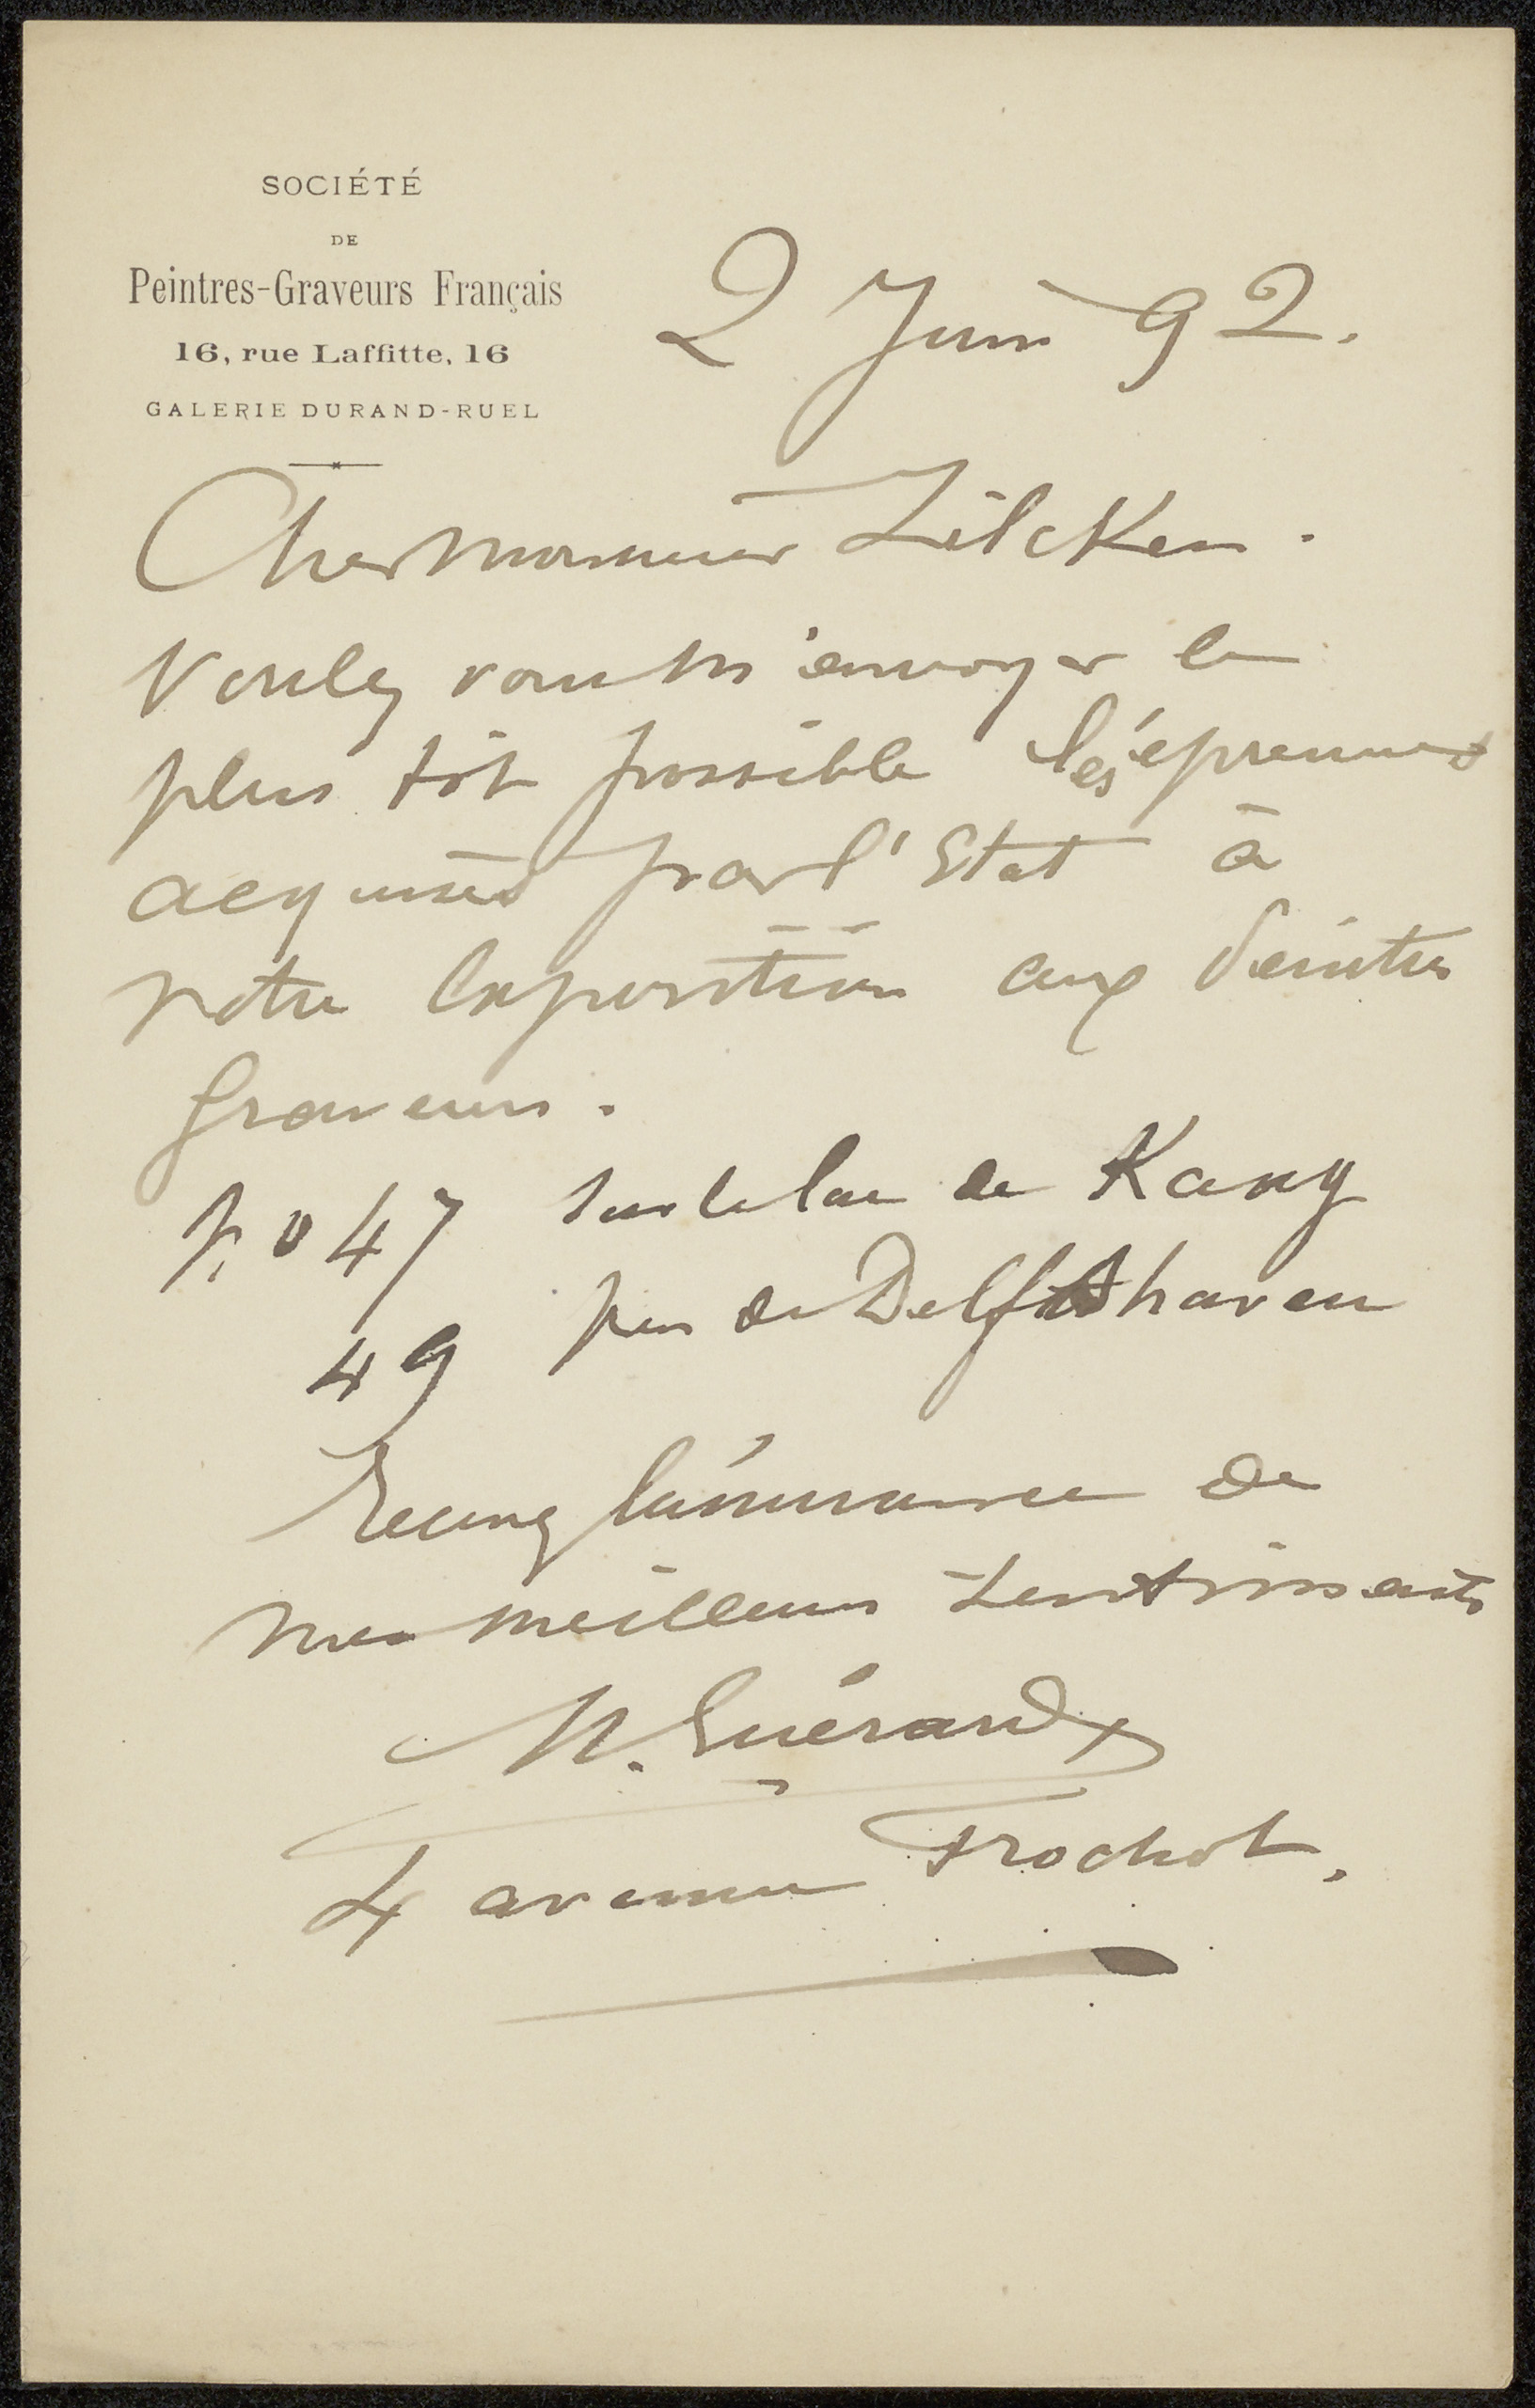 SOCIÉTÉ
DE
Peintres-Graveurs Français
16, rue Laffitte, 16
GALERIE DURAND-RUEL
2 Juin 92.
Cher Monsieur Zilcken.
Voulez vous m'envoyer le
plus tôt possible les épreuves
acquises par l'Etat à
notre Exposition aux Peintres
graveurs.
No 47 sur le lac de Kaag
49 près de Delftshaven
Recevez l'assurance de
mes meilleurs sentiments
H. Guérard
4 avenue Frochot.